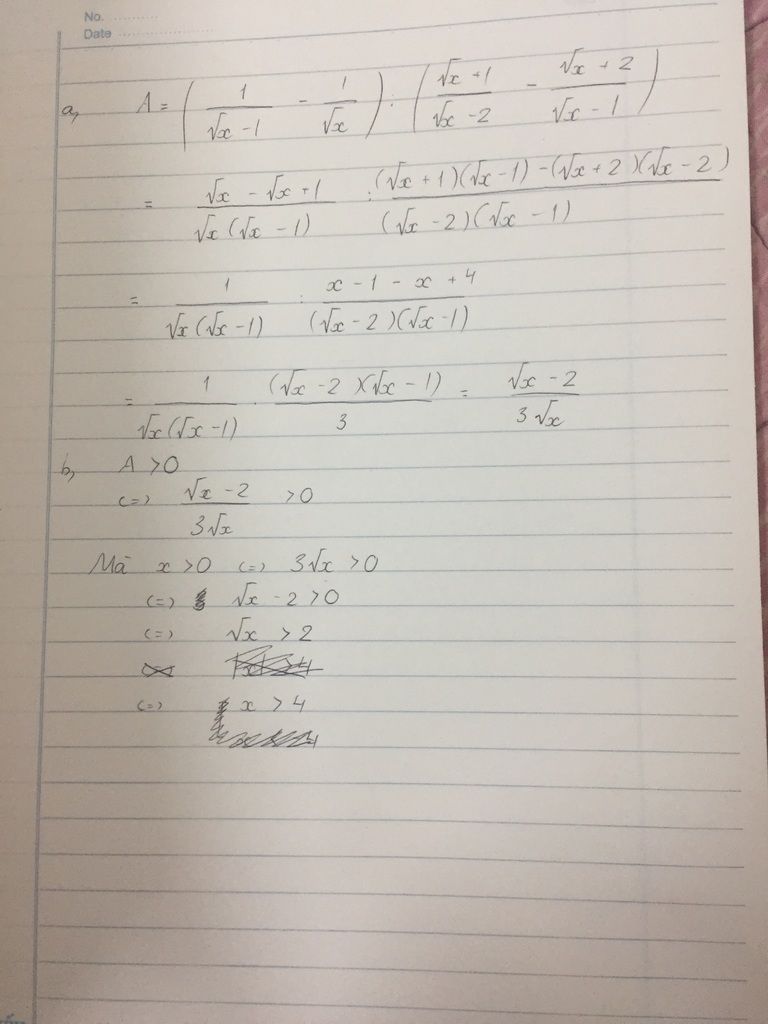 No. ............
Date ........................
a, A = ( 1/(√x - 1) - 1/√x ) : ( (√x + 1)/(√x - 2) - (√x + 2)/(√x - 1) )
= (√x - √x + 1)/(√x (√x - 1)) : ((√x + 1)(√x - 1) - (√x + 2)(√x - 2))/((√x - 2)(√x - 1))
= 1/(√x (√x - 1)) : (x - 1 - x + 4)/((√x - 2)(√x - 1))
= 1/(√x (√x - 1)) . ((√x - 2)(√x - 1))/3 = (√x - 2)/(3√x)
b, A > 0
(=) (√x - 2)/(3√x) > 0
Mà x > 0 (=) 3√x > 0
(=) √x - 2 > 0
(=) √x > 2
(=) x > 4